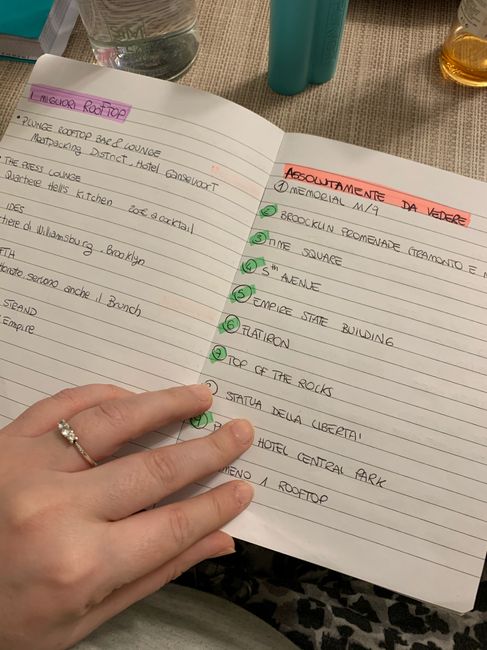 I MIGLIORI ROOFTOP
• PLUNGE ROOFTOP BAR & LOUNGE
Meatpacking District, Hotel Gansevoort
THE PRESS LOUNGE
Quartiere Hell's Kitchen 20€ a cocktail
IDES
di Williamsburg, Brooklyn
FTH
servono anche il Brunch
STRAND
Empire
ASSOLUTAMENTE DA VEDERE
1 MEMORIAL 11/9
2 BROOCKLIN PROMENADE (TRAMONTO E
3 TIME SQUARE
4 5th AVENUE
5 EMPIRE STATE BUILDING
6 FLATIRON
7 TOP OF THE ROCKS
STATUA DELLA LIBERTA'
9 HOTEL CENTRAL PARK
1 ROOFTOP